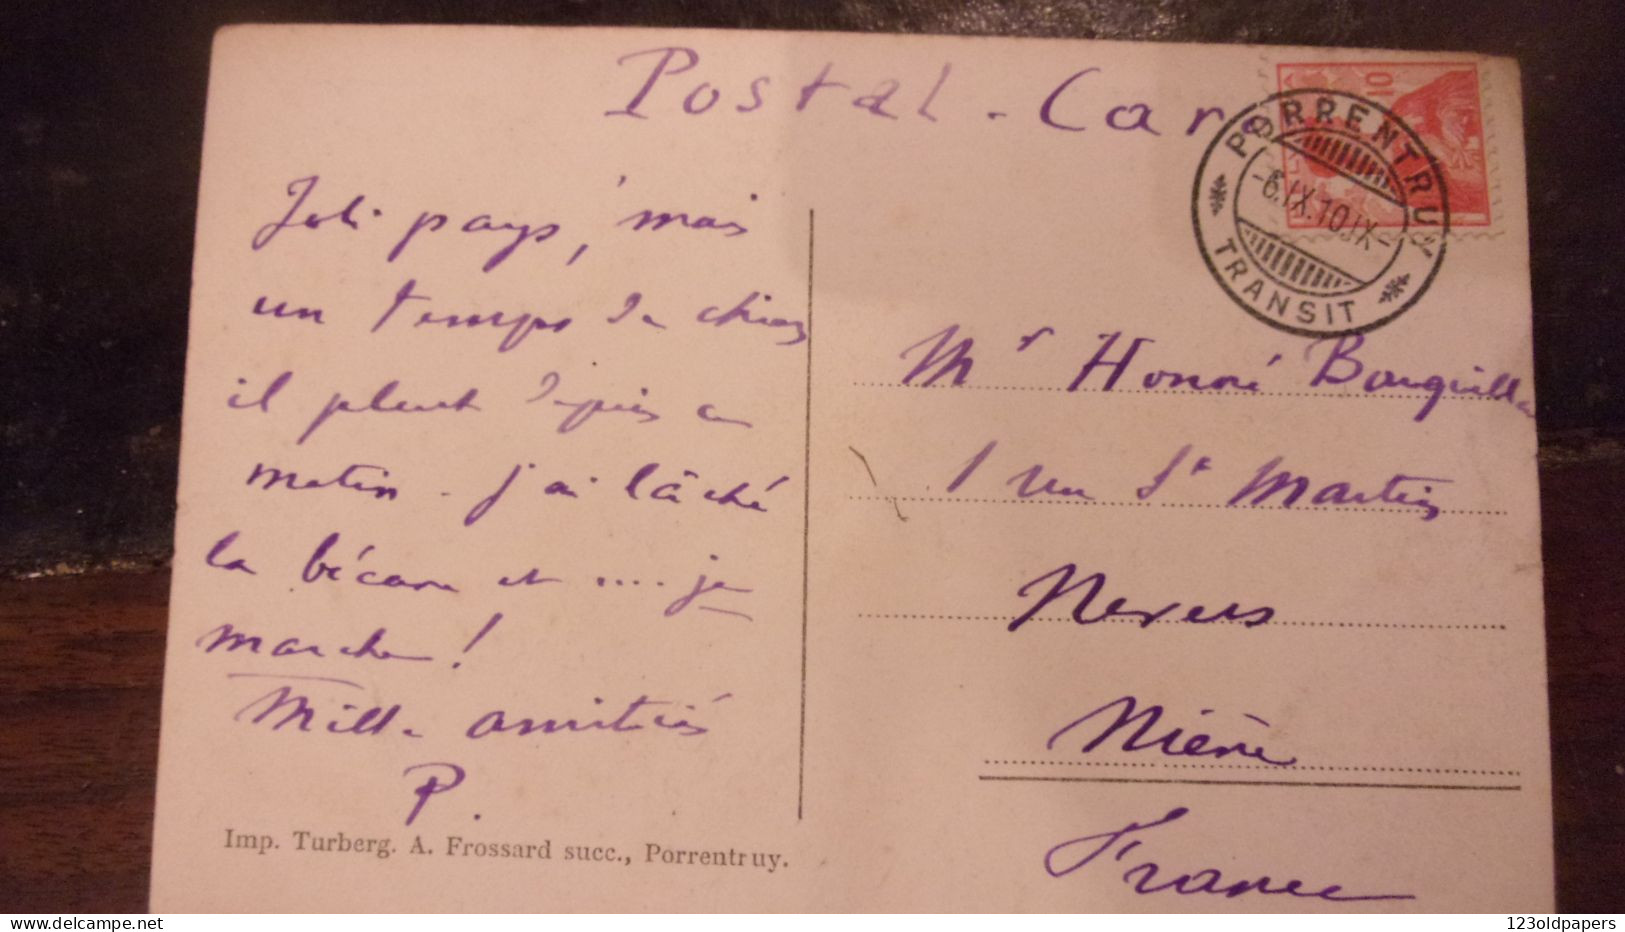 Postal-Card
10
PORRENTRUY
-6.IX.10.IX-
TRANSIT
Joli pays, mais
un temps de chien
il pleut depuis ce
matin - j'ai lâché
la bécane et .... je
marche!
Mille amitiés
P.
Imp. Turberg. A. Frossard succ., Porrentruy.
Mr Honoré
1 rue St Martin
Nevers
Nièvre
France
123oldpapers